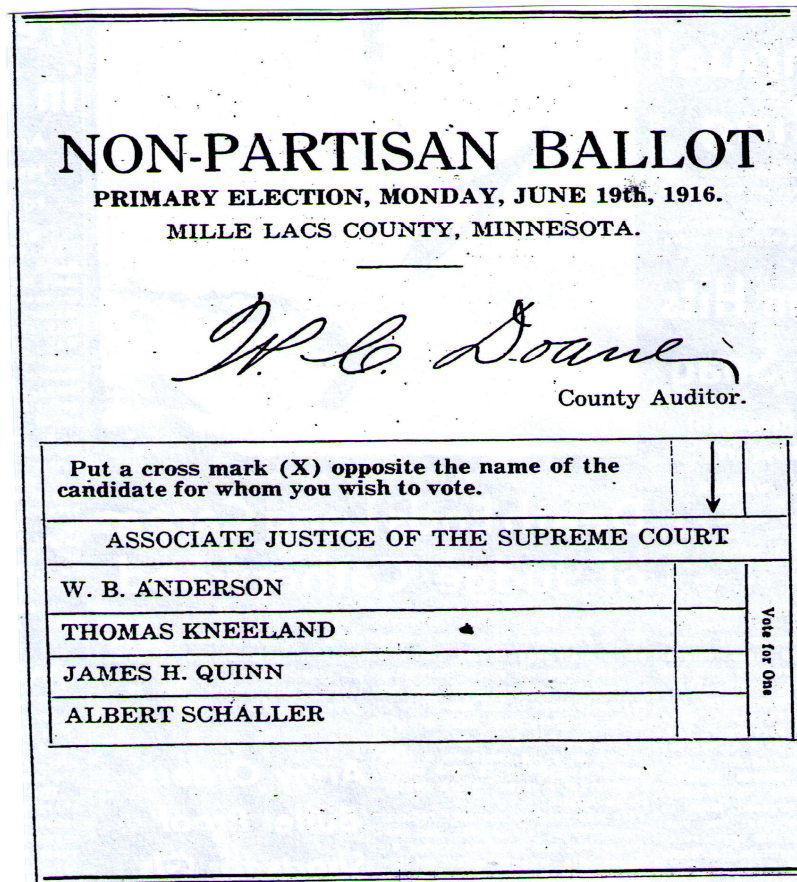 NON-PARTISAN BALLOT
PRIMARY ELECTION, MONDAY, JUNE 19th, 1916.
MILLE LACS COUNTY, MINNESOTA.
W. C. Doane
County Auditor.
Put a cross mark (X) opposite the name of the
candidate for whom you wish to vote.
ASSOCIATE JUSTICE OF THE SUPREME COURT
W. B. ANDERSON
THOMAS KNEELAND
JAMES H. QUINN
ALBERT SCHALLER
Vote for One